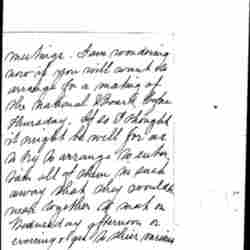 meetings. I am wondering
now if you will want to
arrange for a meeting of
the National Board before
Thursday. If so I thought
it might be well for us
to try to arrange to enter-
tain all of them in such
a way that they would be
near together & not on
Wednesday afternoon or
evening to their